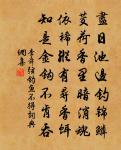 盡日池邊釣錦鱗
芰荷香里暗消魂
依稀縱有尋香餌
知是金鉤不肯吞
李舜弦釣魚不得詞典
網集